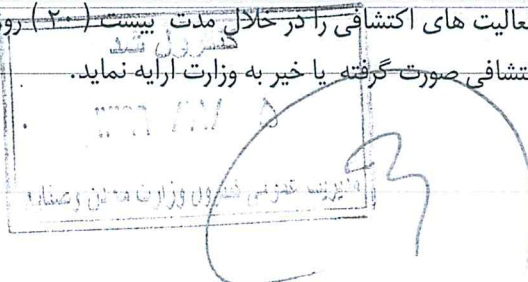 عالیت های اکتشافی را در خلال مدت بیست (۲۰) روز
کنترول شد
تشافی صورت گرفته یا خیر به وزارت ارایه نماید.
مدیریت عمومی کنترول وزارت معادن و صنایع